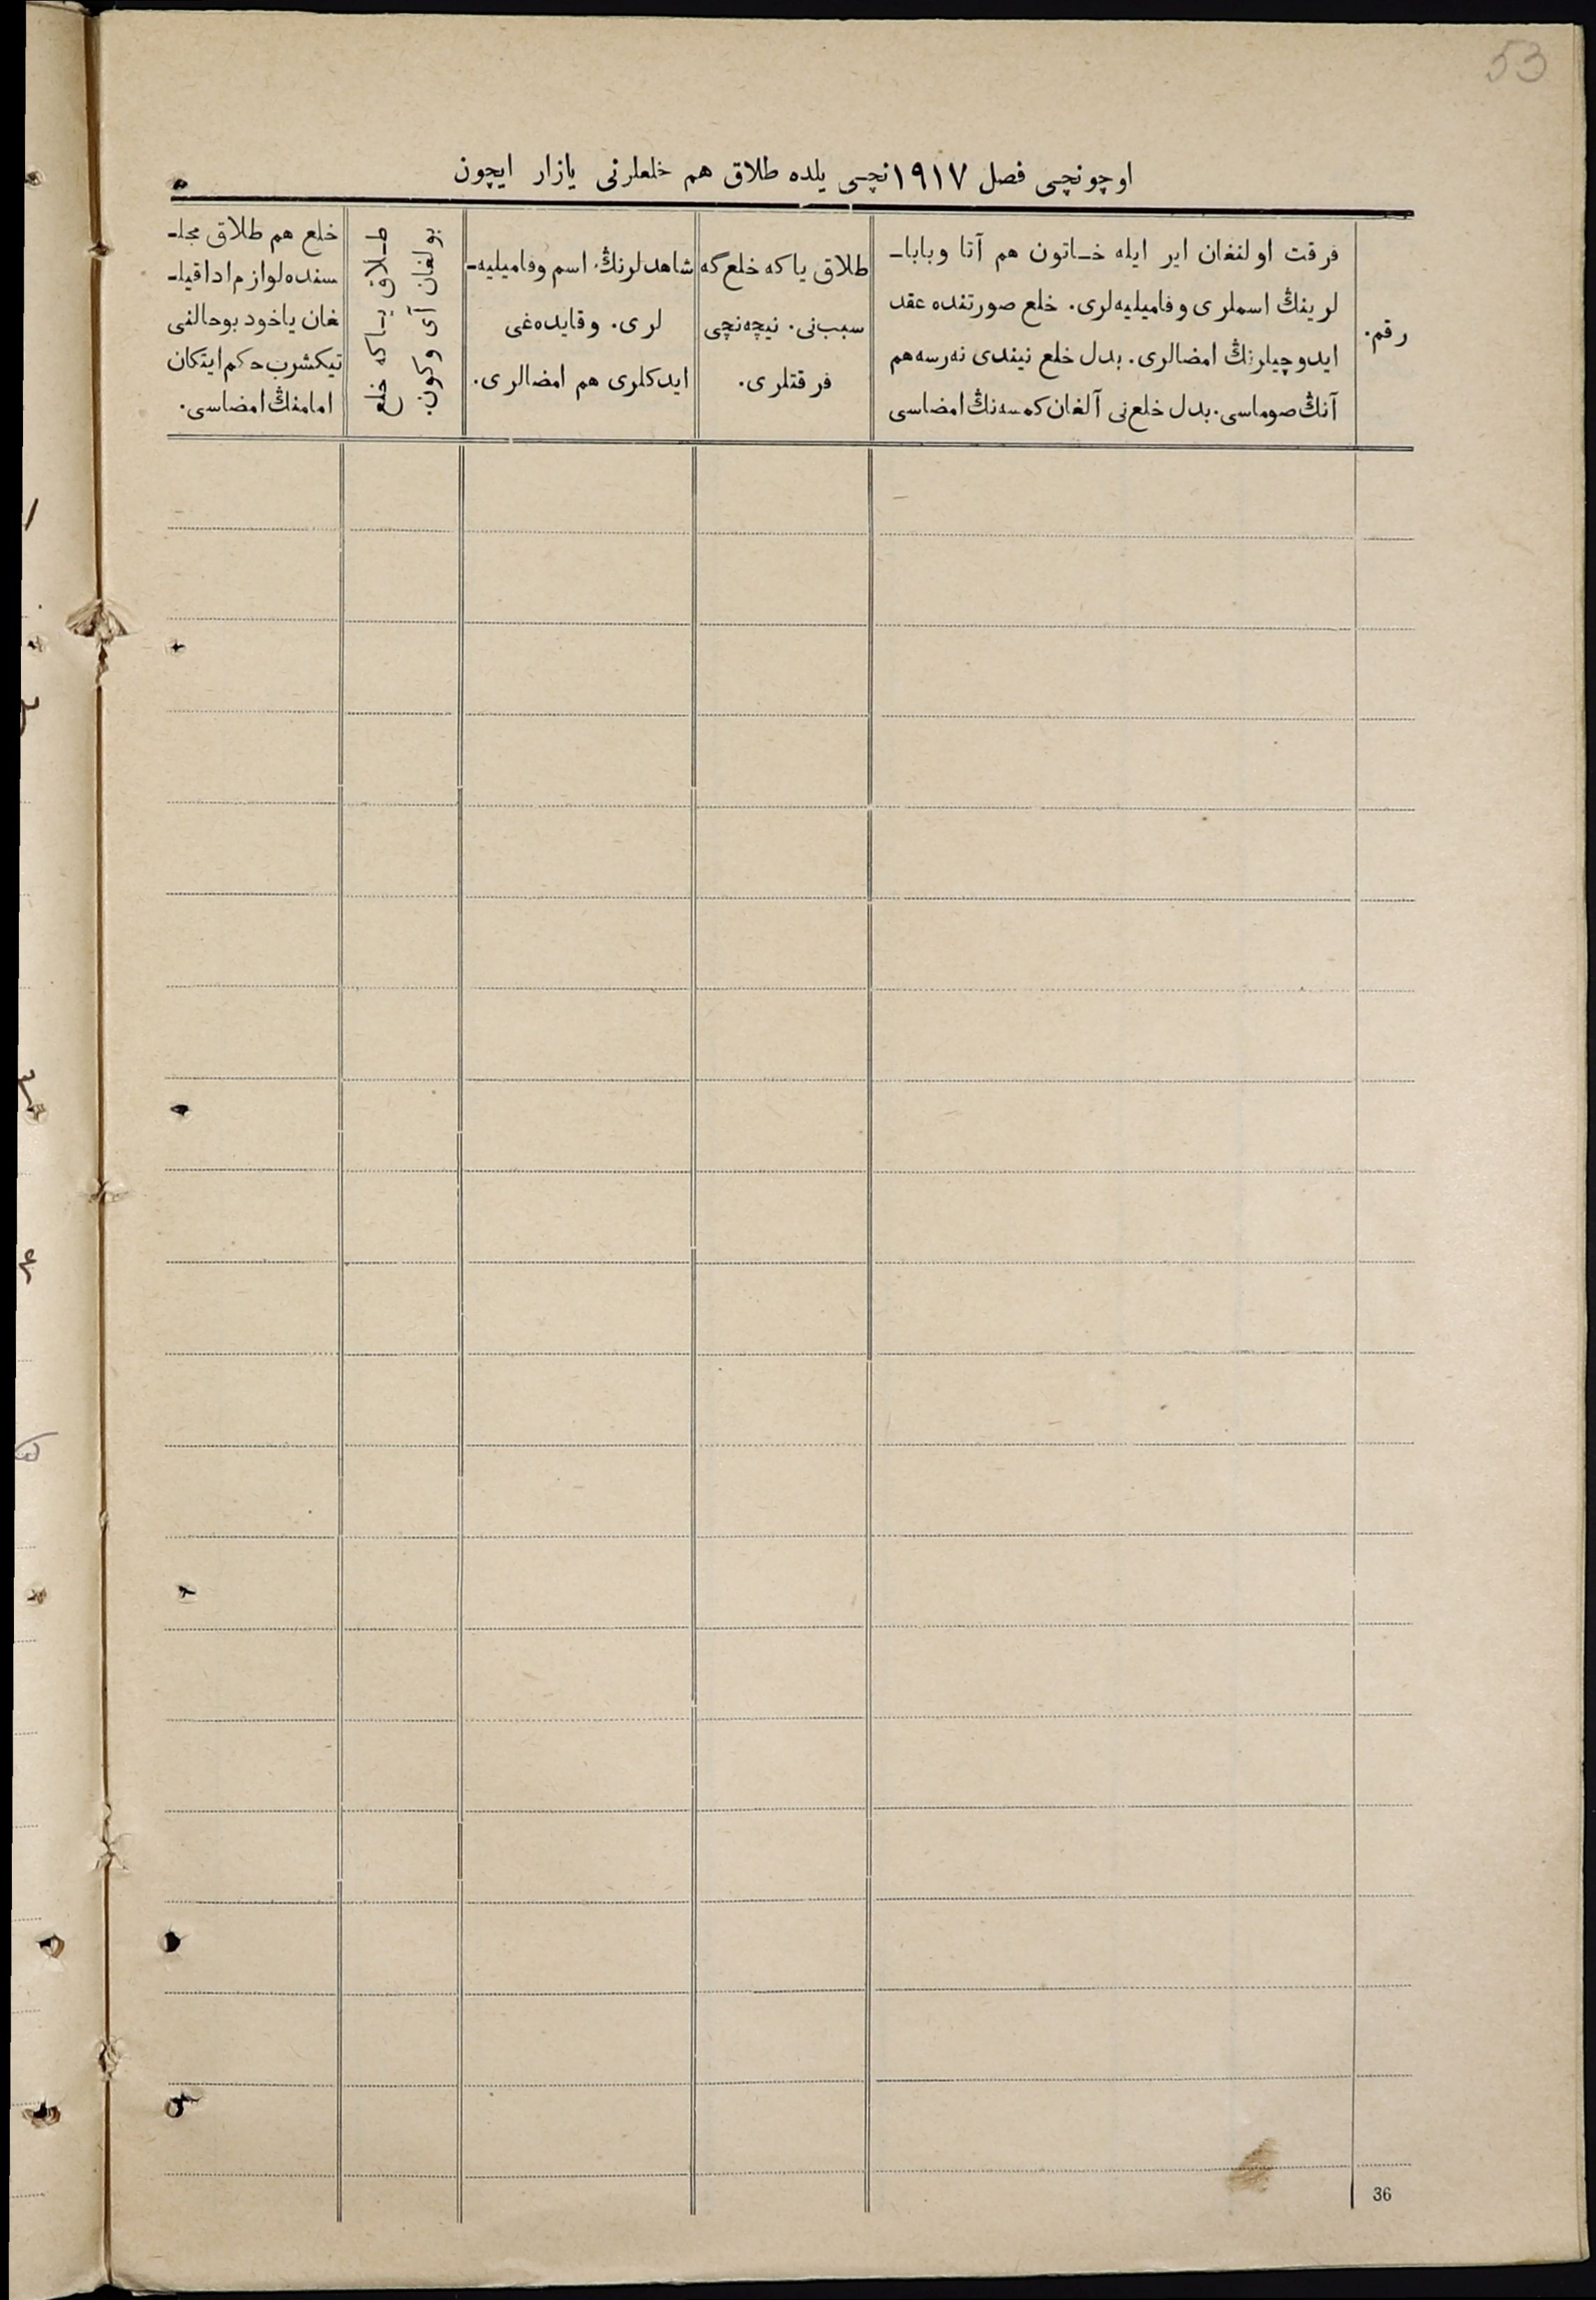 53
اوچونچی فصل ۱۹۱۷نچی یلده طلاق هم خلعلرنی یازار ایچون
رقم.
فرقت اولنغان ایر ایله خـاتون هم آتا وبابا‌ـ
لرینڭ اسملری وفامیلیه‌لری. خلع صورتنده عقد
ایدوچیلرنڭ امضالری. بدل خلع نیندی نه‌رسه‌هم
آنڭ صوماسی. بدل خلع‌نی آلغان کمسه‌نڭ امضاسی
طلاق یاکه خلع‌گه
سبب‌نی. نیچه‌نچی
فرقتلری.
شاهدلرنڭ اسم وفامیلیه‌ـ
لری. وقایده‌غی
ایدکلری هم امضالری.
طـلاق یـاکه خلع
بولغان آی وکون.
خلع هم طلاق مجلـ
سنده‌لوازم‌اداقیلـ
غان یاخود بوحالنی
تیکشرب‌حکم‌ایتکان
امامنڭ امضاسی.
36